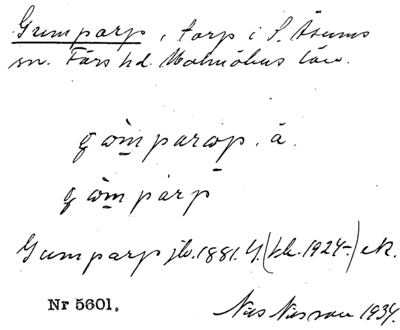 Gumparp, torp i S. Åsums
sn. Färs hd. Malmöhus län.
gòm̲parap. ä.
gòm̲parp
Gumparp jb. 1881. 4. (bl. 1924-) ek.
Nr 5601.
Nils Nilsson 1934.